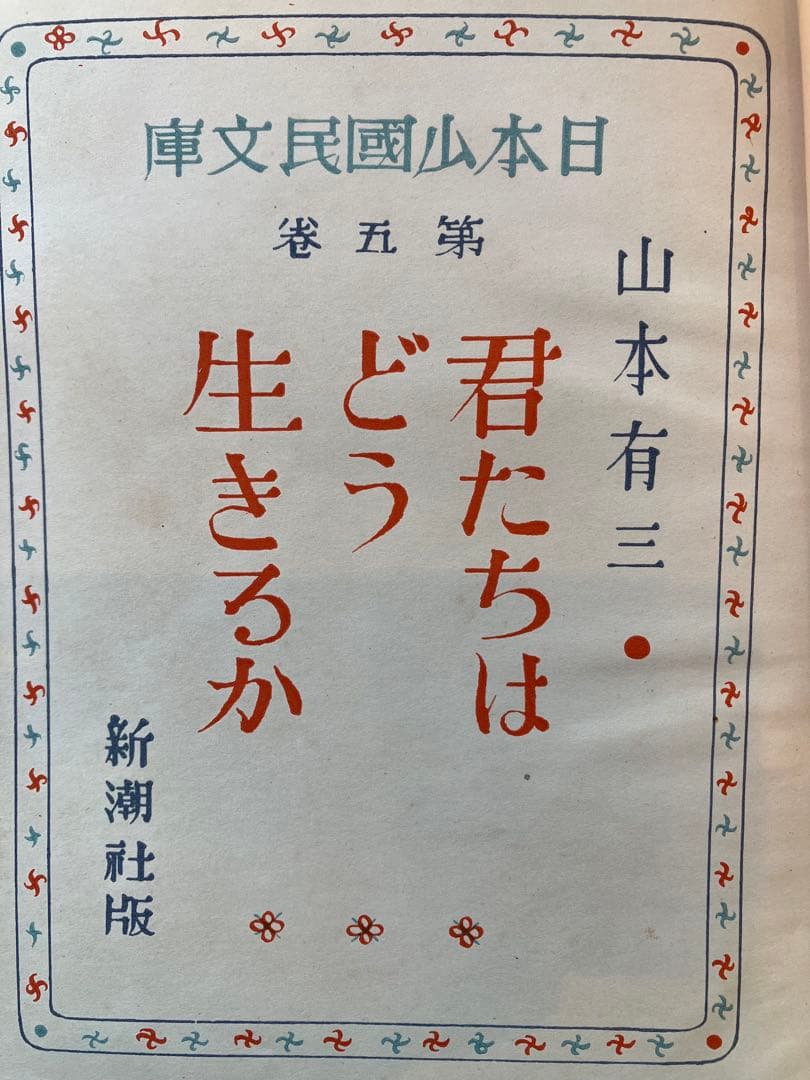 日本少國民文庫
第五卷
山本有三
君たちは
どう
生きるか
新潮社版